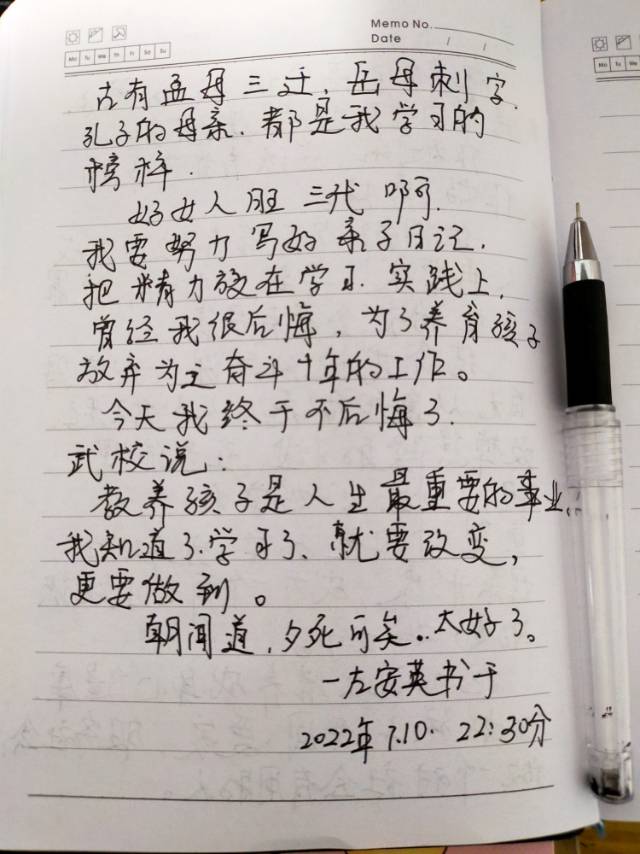 Memo No.
Date / /
Mo Tu We Th Fr Sa Su
古有孟母三迁，岳母刺字，
孔子的母亲．都是我学习的
榜样．
好女人旺三代啊．
我要努力写好亲子日记．
把精力放在学习．实践上．
曾经我很后悔，为了养育孩子
放弃为之奋斗十年的工作。
今天我终于不后悔了．
武校说：
教养孩子是人生最重要的事业、
我知道了．学习了、就要改变，
更要做到。
朝闻道，夕死可矣．．太好了。
一左安英书于
2022年7.10. 22:30分